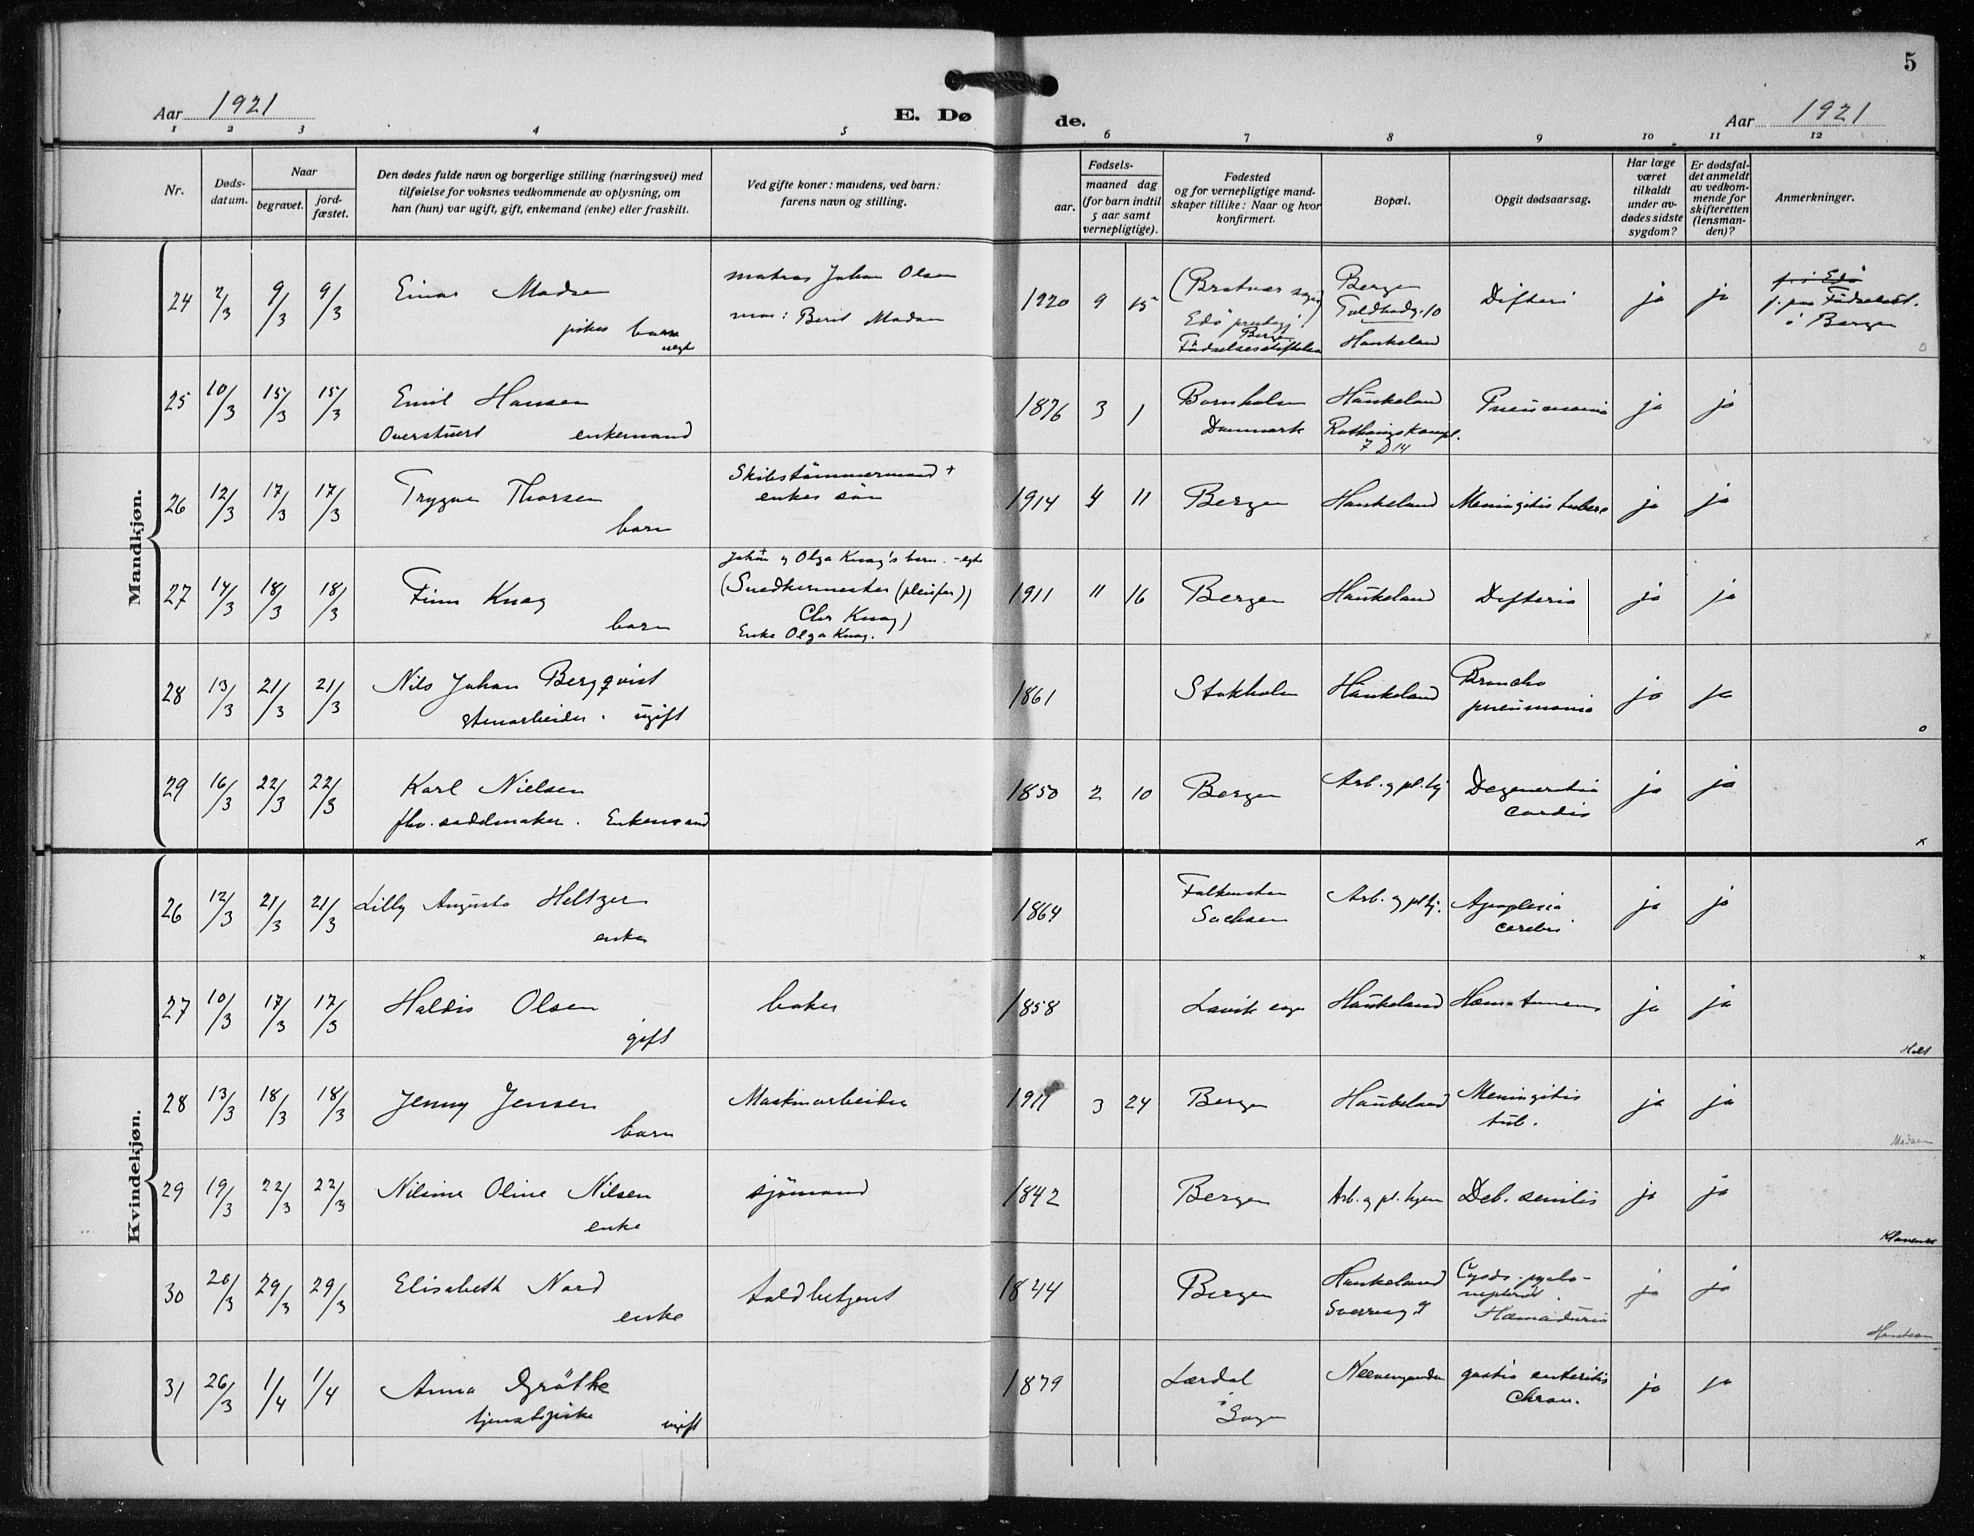 5
Aar 1921
E. Dø
de.
Aar 1921
1 2 3 4 5 6 7 8 9 10 11 12
Nr.
Døds-
datum.
Naar
begravet.
jord-
fæstet.
Den dødes fulde navn og borgerlige stilling (næringsvei) med
tilføielse for voksnes vedkommende av oplysning, om
han (hun) var ugift, gift, enkemand (enke) eller fraskilt.
Ved gifte koner: mandens, ved barn:
farens navn og stilling.
Fødsels-
aar.
maaned dag
(for barn indtil
5 aar samt
vernepligtige).
Fødested
og for vernepligtige mand-
skaper tillike: Naar og hvor
konfirmert.
Bopæl.
Opgit dødsaarsag.
Har læge
været
tilkaldt
under av-
dødes sidste
sygdom?
Er dødsfal-
det anmeldt
av vedkom-
mende for
skifteretten
(lensman-
den)?
Anmerkninger.
Mandkjøn.
24 2/3 9/3 9/3
Einar Madsen
pikes barn
uegte
matros Johan Olsen
mor: Berit Madsen
1920 9 15
(Bratvær sogn)
Edö prestegj.
Bergen
Fødselsstiftelsen
Bergen
Toldbodg. 10
Haukeland
Difteri
ja ja
Edö
Fødselsst.
i Bergen
o
25 10/3 15/3 15/3
Emil Hansen
Overstuert enkemand
1876 3 1
Bornholm
Danmark
Haukeland
7 D 14
Pneumonia
ja ja
x
26 12/3 17/3 17/3
Trygve Thorsen
barn
Skibstømmermand +
enkes søn
1914 4 11
Bergen
Haukeland
Meningitis tuberc
ja ja
x
27 14/3 18/3 18/3
Finn Knag
barn
Johan og Olga Knag's barn. - egte
(Snedkermester (pleiefar))
Chr Knag)
Enke Olga Knag.
1911 11 16
Bergen
Haukeland
Difteria
ja ja
x
28 13/3 21/3 21/3
Nils Johan Bergqvist
stenarbeider. ugift
1861
Stokholm
Haukeland
Broncho
pneumonia
ja ja
o
29 16/3 22/3 22/3
Karl Nielsen
fhv. sadelmaker. Enkemand
1850 2 10
Bergen
Arb. og pl. hj
Degeneratio
cordis
ja ja
x
Kvindekjøn.
26 12/3 21/3 21/3
Lilly Augusta Heltzer
enke
1864
Falkenstein
Sachsen
Arb. og pl hj.
Apoplexia
cerebri
ja ja
x
27 10/3 17/3 17/3
Haldis Olsen
gift
baker
1858
Lavik sogn
Haukeland
ja ja
Holt
28 13/3 18/3 18/3
Jenny Jensen
barn
Maskinarbeider
1911 3 24
Bergen
Haukeland
Meningitis
tub.
ja ja
Madsen
29 19/3 22/3 22/3
Nilsine Oline Nilsen
enke
sjömand
1842
Bergen
Arb. og pl. hjem
Deb. senilis
ja ja
Klaveness
30 20/3 29/3 29/3
Elisabeth Nord
enke
toldbetjent
1844
Bergen
Haukeland
Sverresg. 9
Cysto-pyelo-
nephrit.
Hæmaturia
ja ja
31 26/3 1/4 1/4
Anna Grøthe
tjenestepike ugift
1879
Lærdal
i
Sogn
Neevengaarden
gastro enteritis
chron.
ja ja